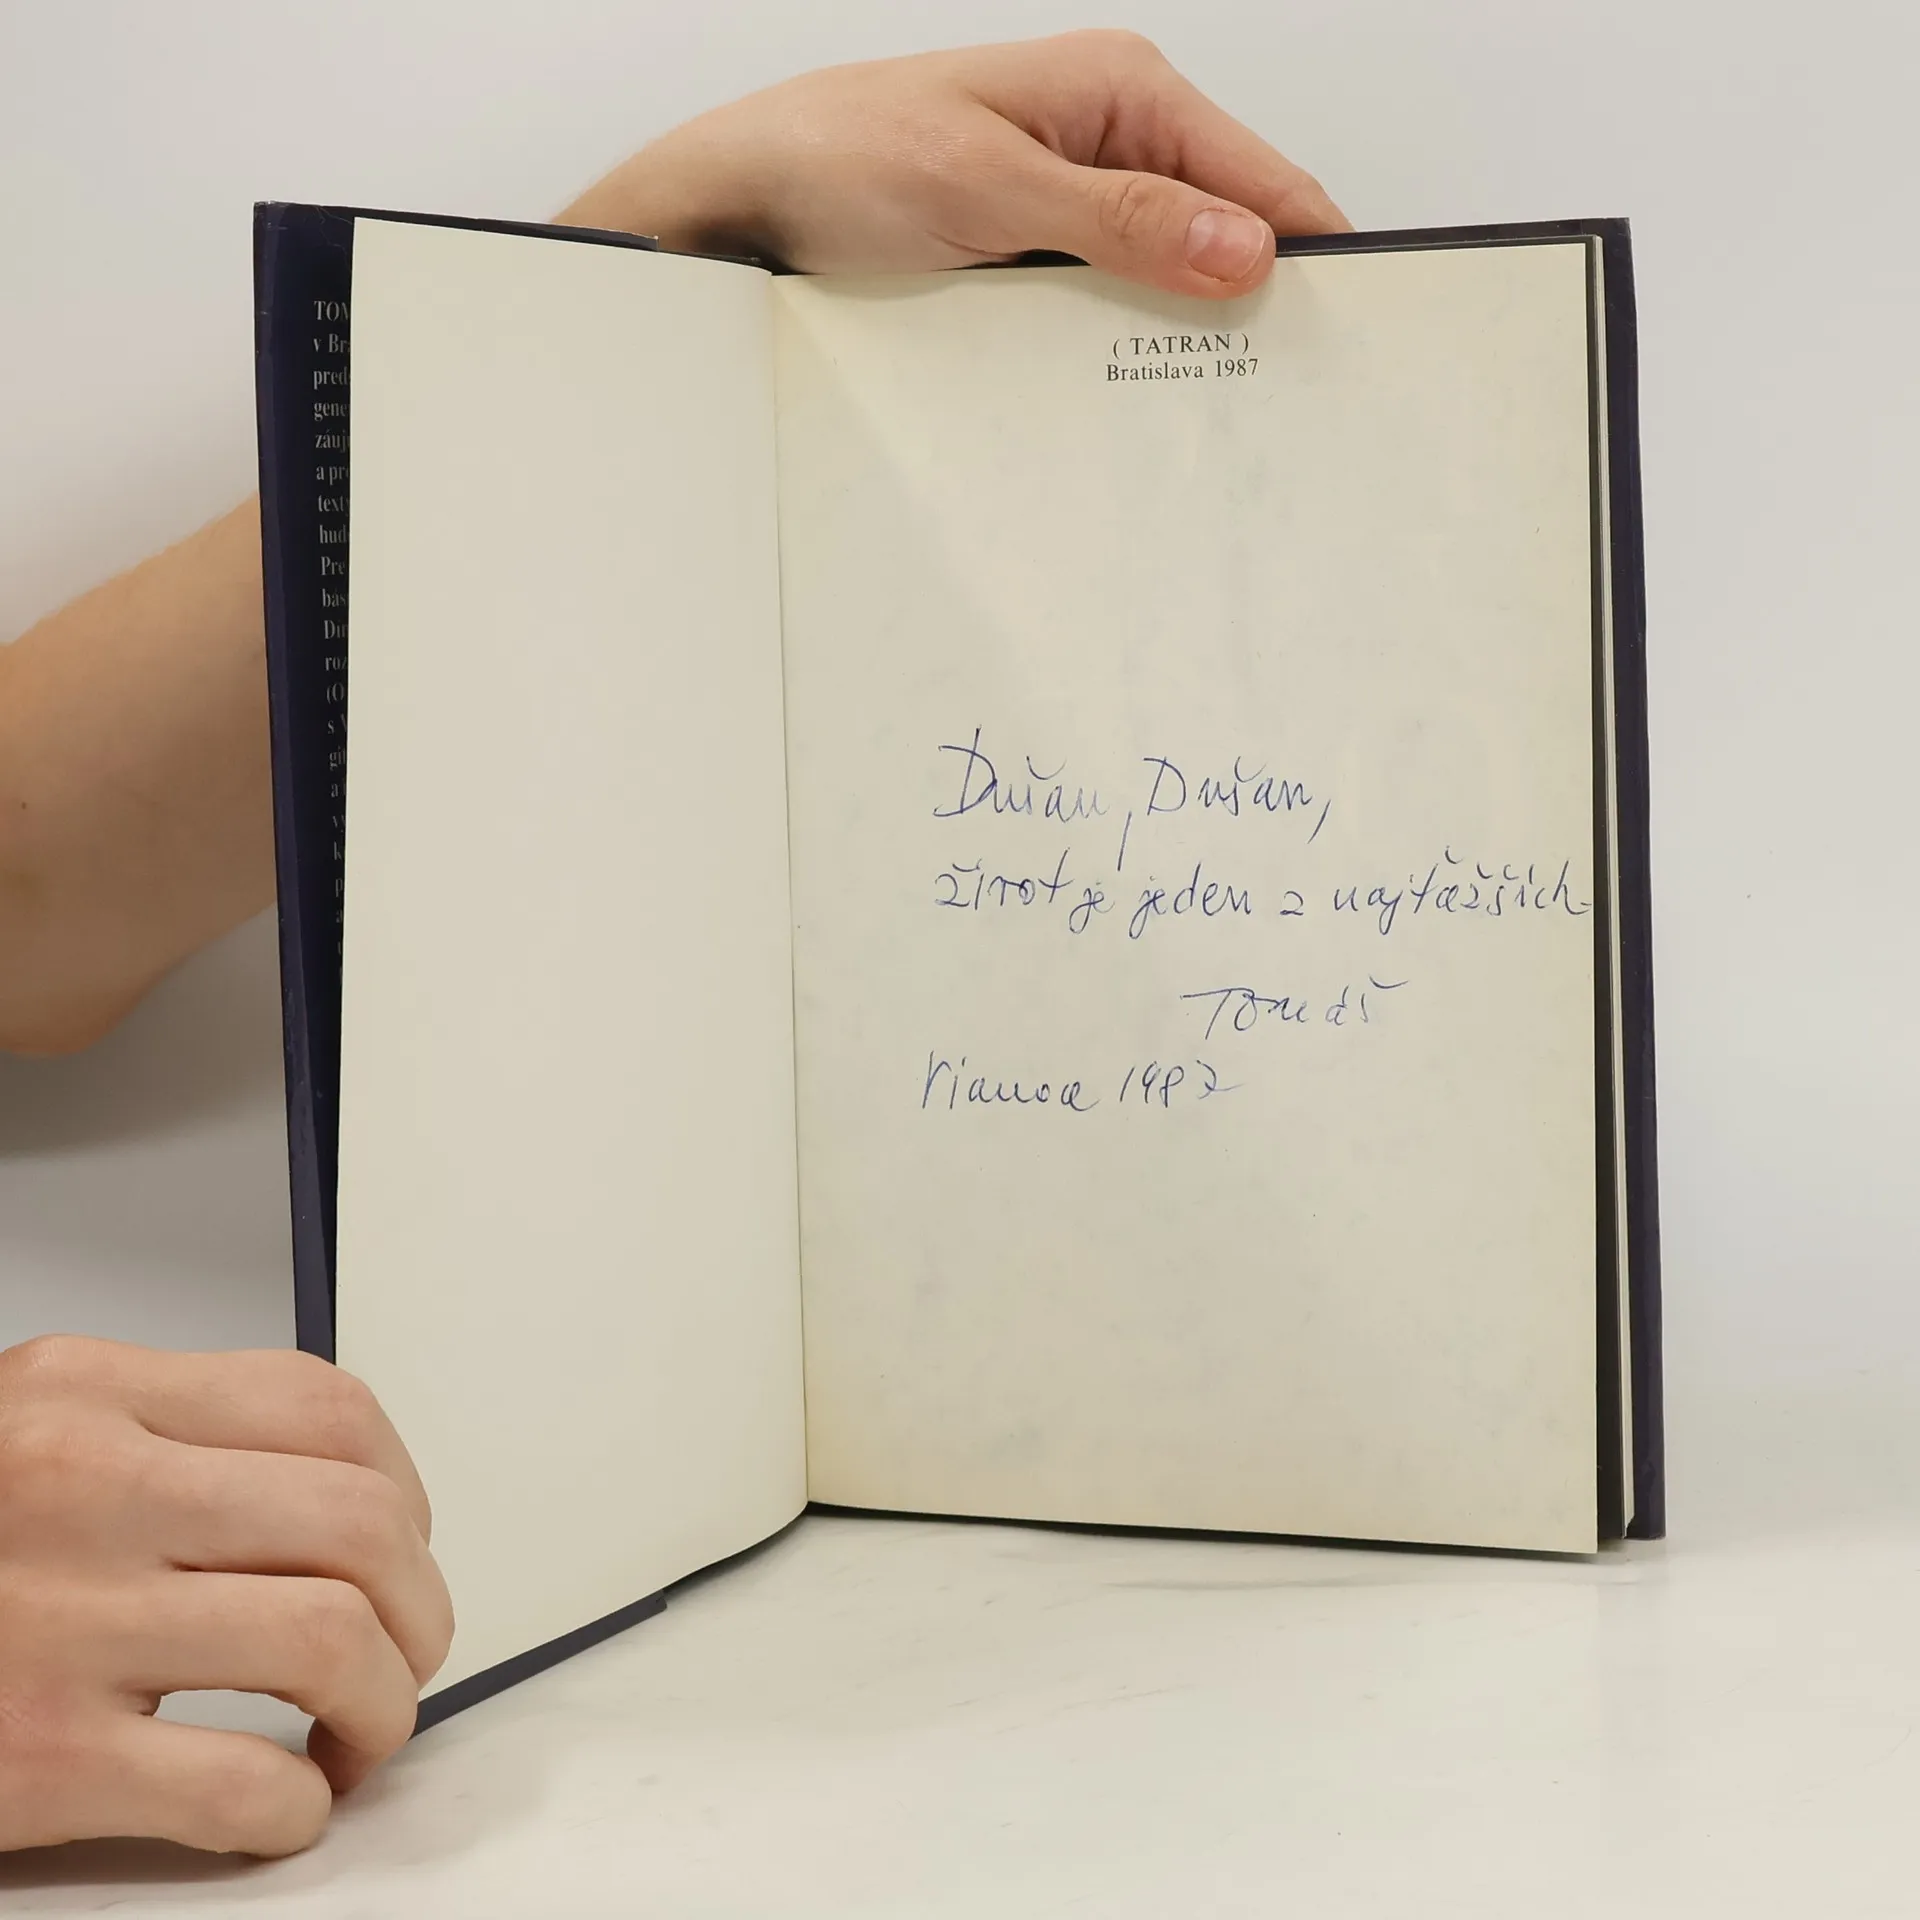 TOM
v Br
pred
gene
záuj
a pr
text
hud
Pre
bás
Du
roz
(O
s V
( TATRAN )
Bratislava 1987
Dušan, Dušan,
život je jeden z najťažších
Tomáš
Vianoce 1987